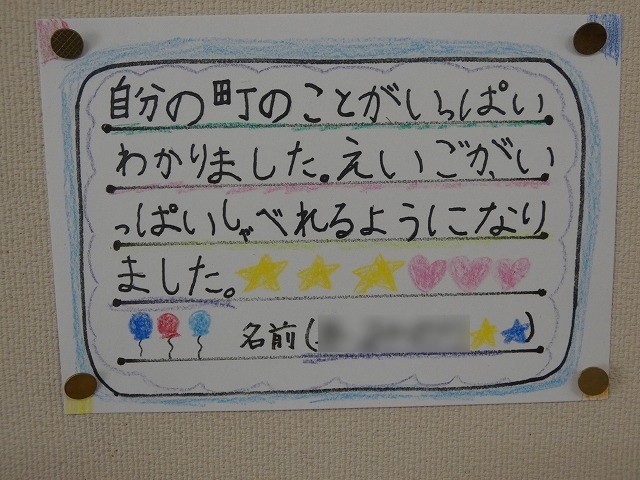 自分の町のことがいっぱい
わかりました。えいごが、い
っぱいしゃべれるようになり
ました。
名前( )